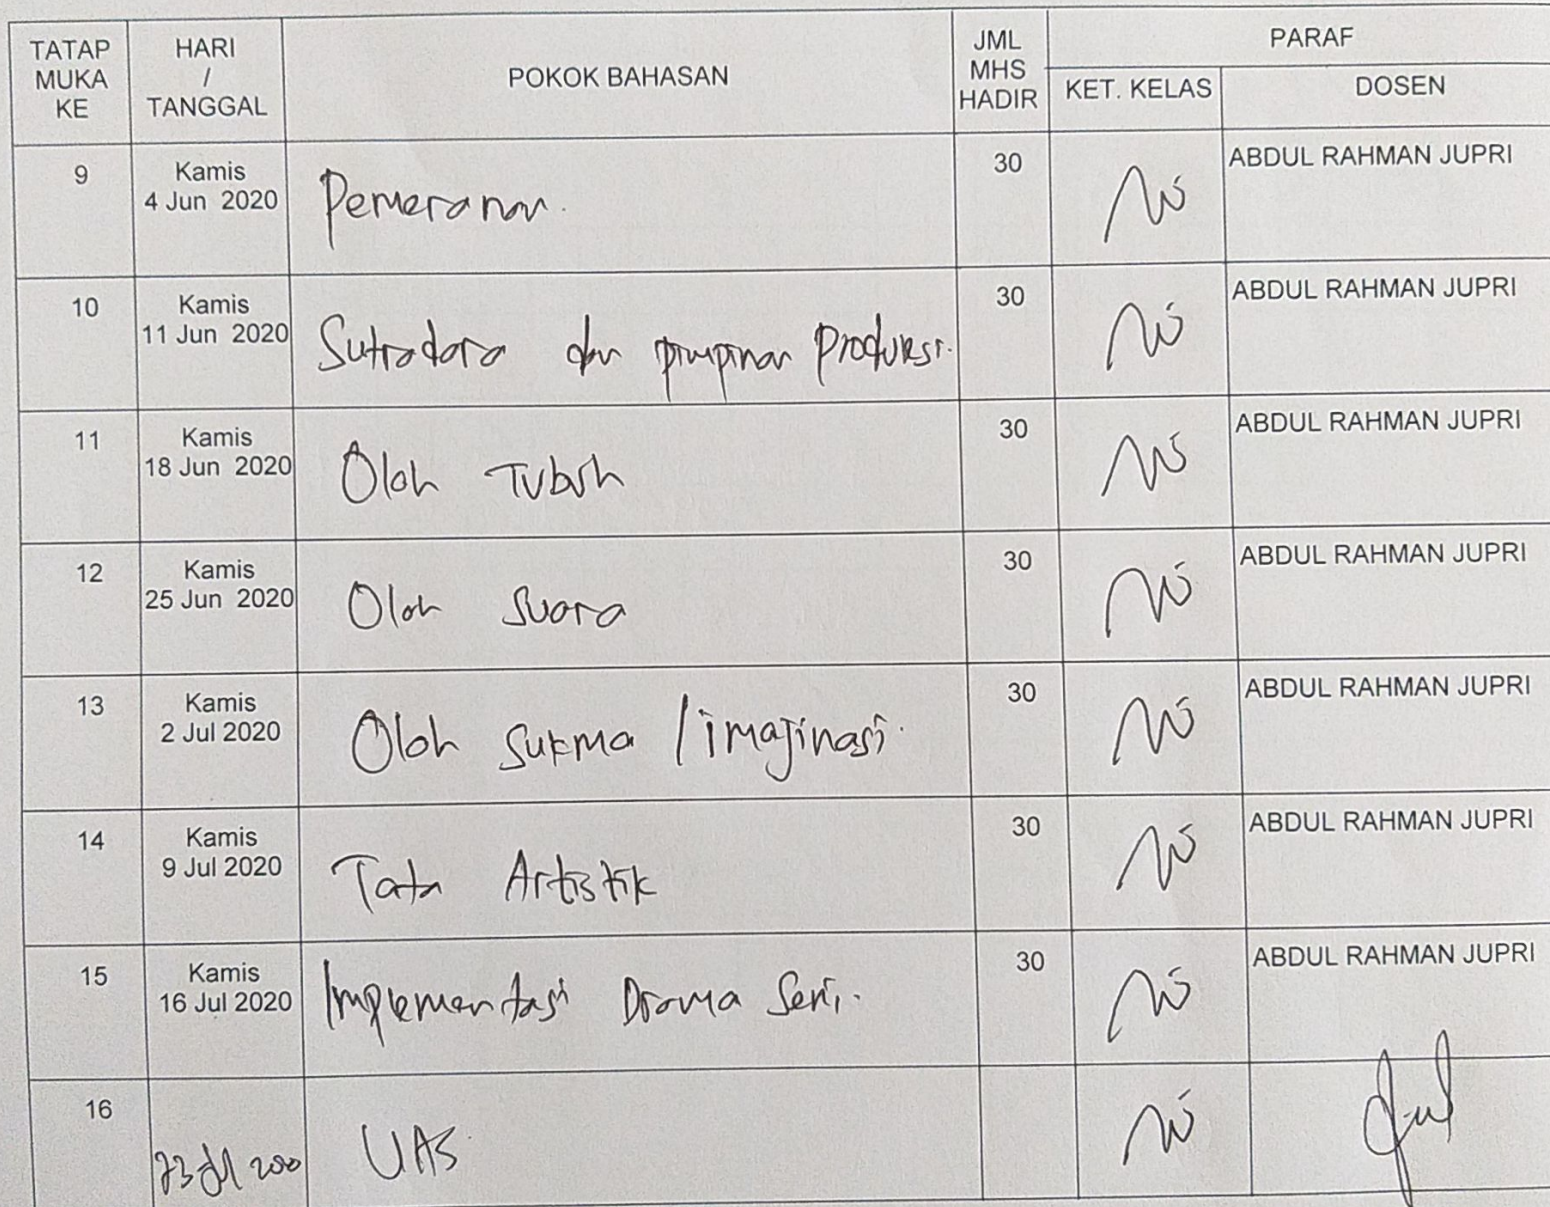 TATAP MUKA KE HARI / TANGGAL POKOK BAHASAN JML MHS HADIR PARAF
KET. KELAS DOSEN
9 Kamis 4 Jun 2020 Pemeranan. 30 ABDUL RAHMAN JUPRI
10 Kamis 11 Jun 2020 Sutradara dan pimpinan Produksi. 30 ABDUL RAHMAN JUPRI
11 Kamis 18 Jun 2020 Olah Tubuh 30 ABDUL RAHMAN JUPRI
12 Kamis 25 Jun 2020 Olah Suara 30 ABDUL RAHMAN JUPRI
13 Kamis 2 Jul 2020 Olah Sukma / imajinasi. 30 ABDUL RAHMAN JUPRI
14 Kamis 9 Jul 2020 Tata Artistik 30 ABDUL RAHMAN JUPRI
15 Kamis 16 Jul 2020 Implementasi Drama Seri. 30 ABDUL RAHMAN JUPRI
16 23 Jul UAS.